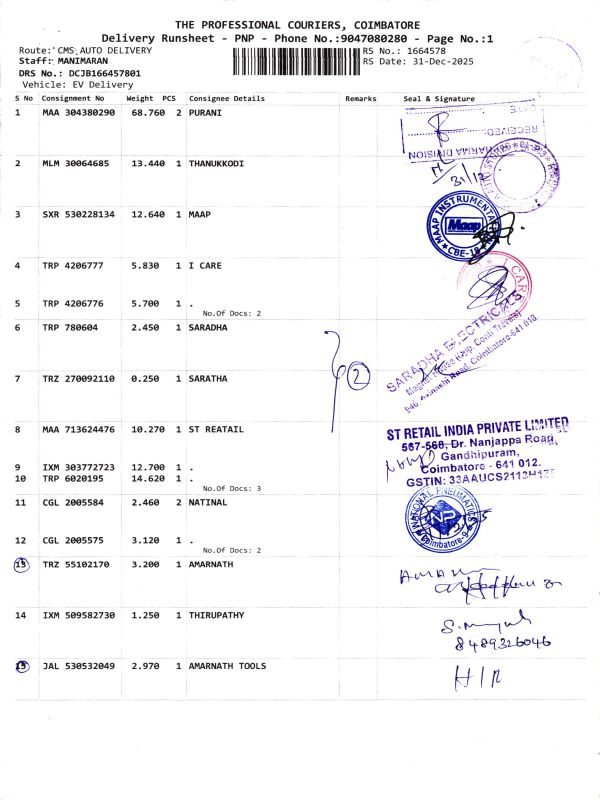 THE PROFESSIONAL COURIERS, COIMBATORE
Delivery Runsheet - PNP - Phone No.:9047080280 - Page No.:1
Route: CMS AUTO DELIVERY
RS No.: 1664578
Staff: MANIMARAN
RS Date: 31-Dec-2025
DRS No.: DCJB166457801
Vehicle: EV Delivery
S No Consignment No Weight PCS Consignee Details Remarks Seal & Signature
1 MAA 304380290 68.760 2 PURANI
DATE
RECEIVED:
PHARMA DIVISION
2 MLM 30064685 13.440 1 THANUKKODI
31/12
3 SXR 530228134 12.640 1 MAAP
MAAP INSTRUMENTA
Maap
CBE-18
4 TRP 4206777 5.830 1 I CARE
I CARE
5 TRP 4206776 5.700 1 .
No.Of Docs: 2
6 TRP 780604 2.450 1 SARADHA
SARADHA ELECTRICALS
Coimbatore-641 018
7 TRZ 270092110 0.250 1 SARATHA
2
8 MAA 713624476 10.270 1 ST REATAIL
ST RETAIL INDIA PRIVATE LIMITED
567-568, Dr. Nanjappa Road,
Gandhipuram,
Coimbatore - 641 012.
GSTIN: 33AAUCS2113H1
9 IXM 303772723 12.700 1 .
10 TRP 6020195 14.620 1 .
No.Of Docs: 3
11 CGL 2005584 2.460 2 NATINAL
NATIONAL PNEUMATICS
NP
Coimbatore-9
12 CGL 2005575 3.120 1 .
No.Of Docs: 2
13 TRZ 55102170 3.200 1 AMARNATH
14 IXM 509582730 1.250 1 THIRUPATHY
8489326046
15 JAL 530532049 2.970 1 AMARNATH TOOLS